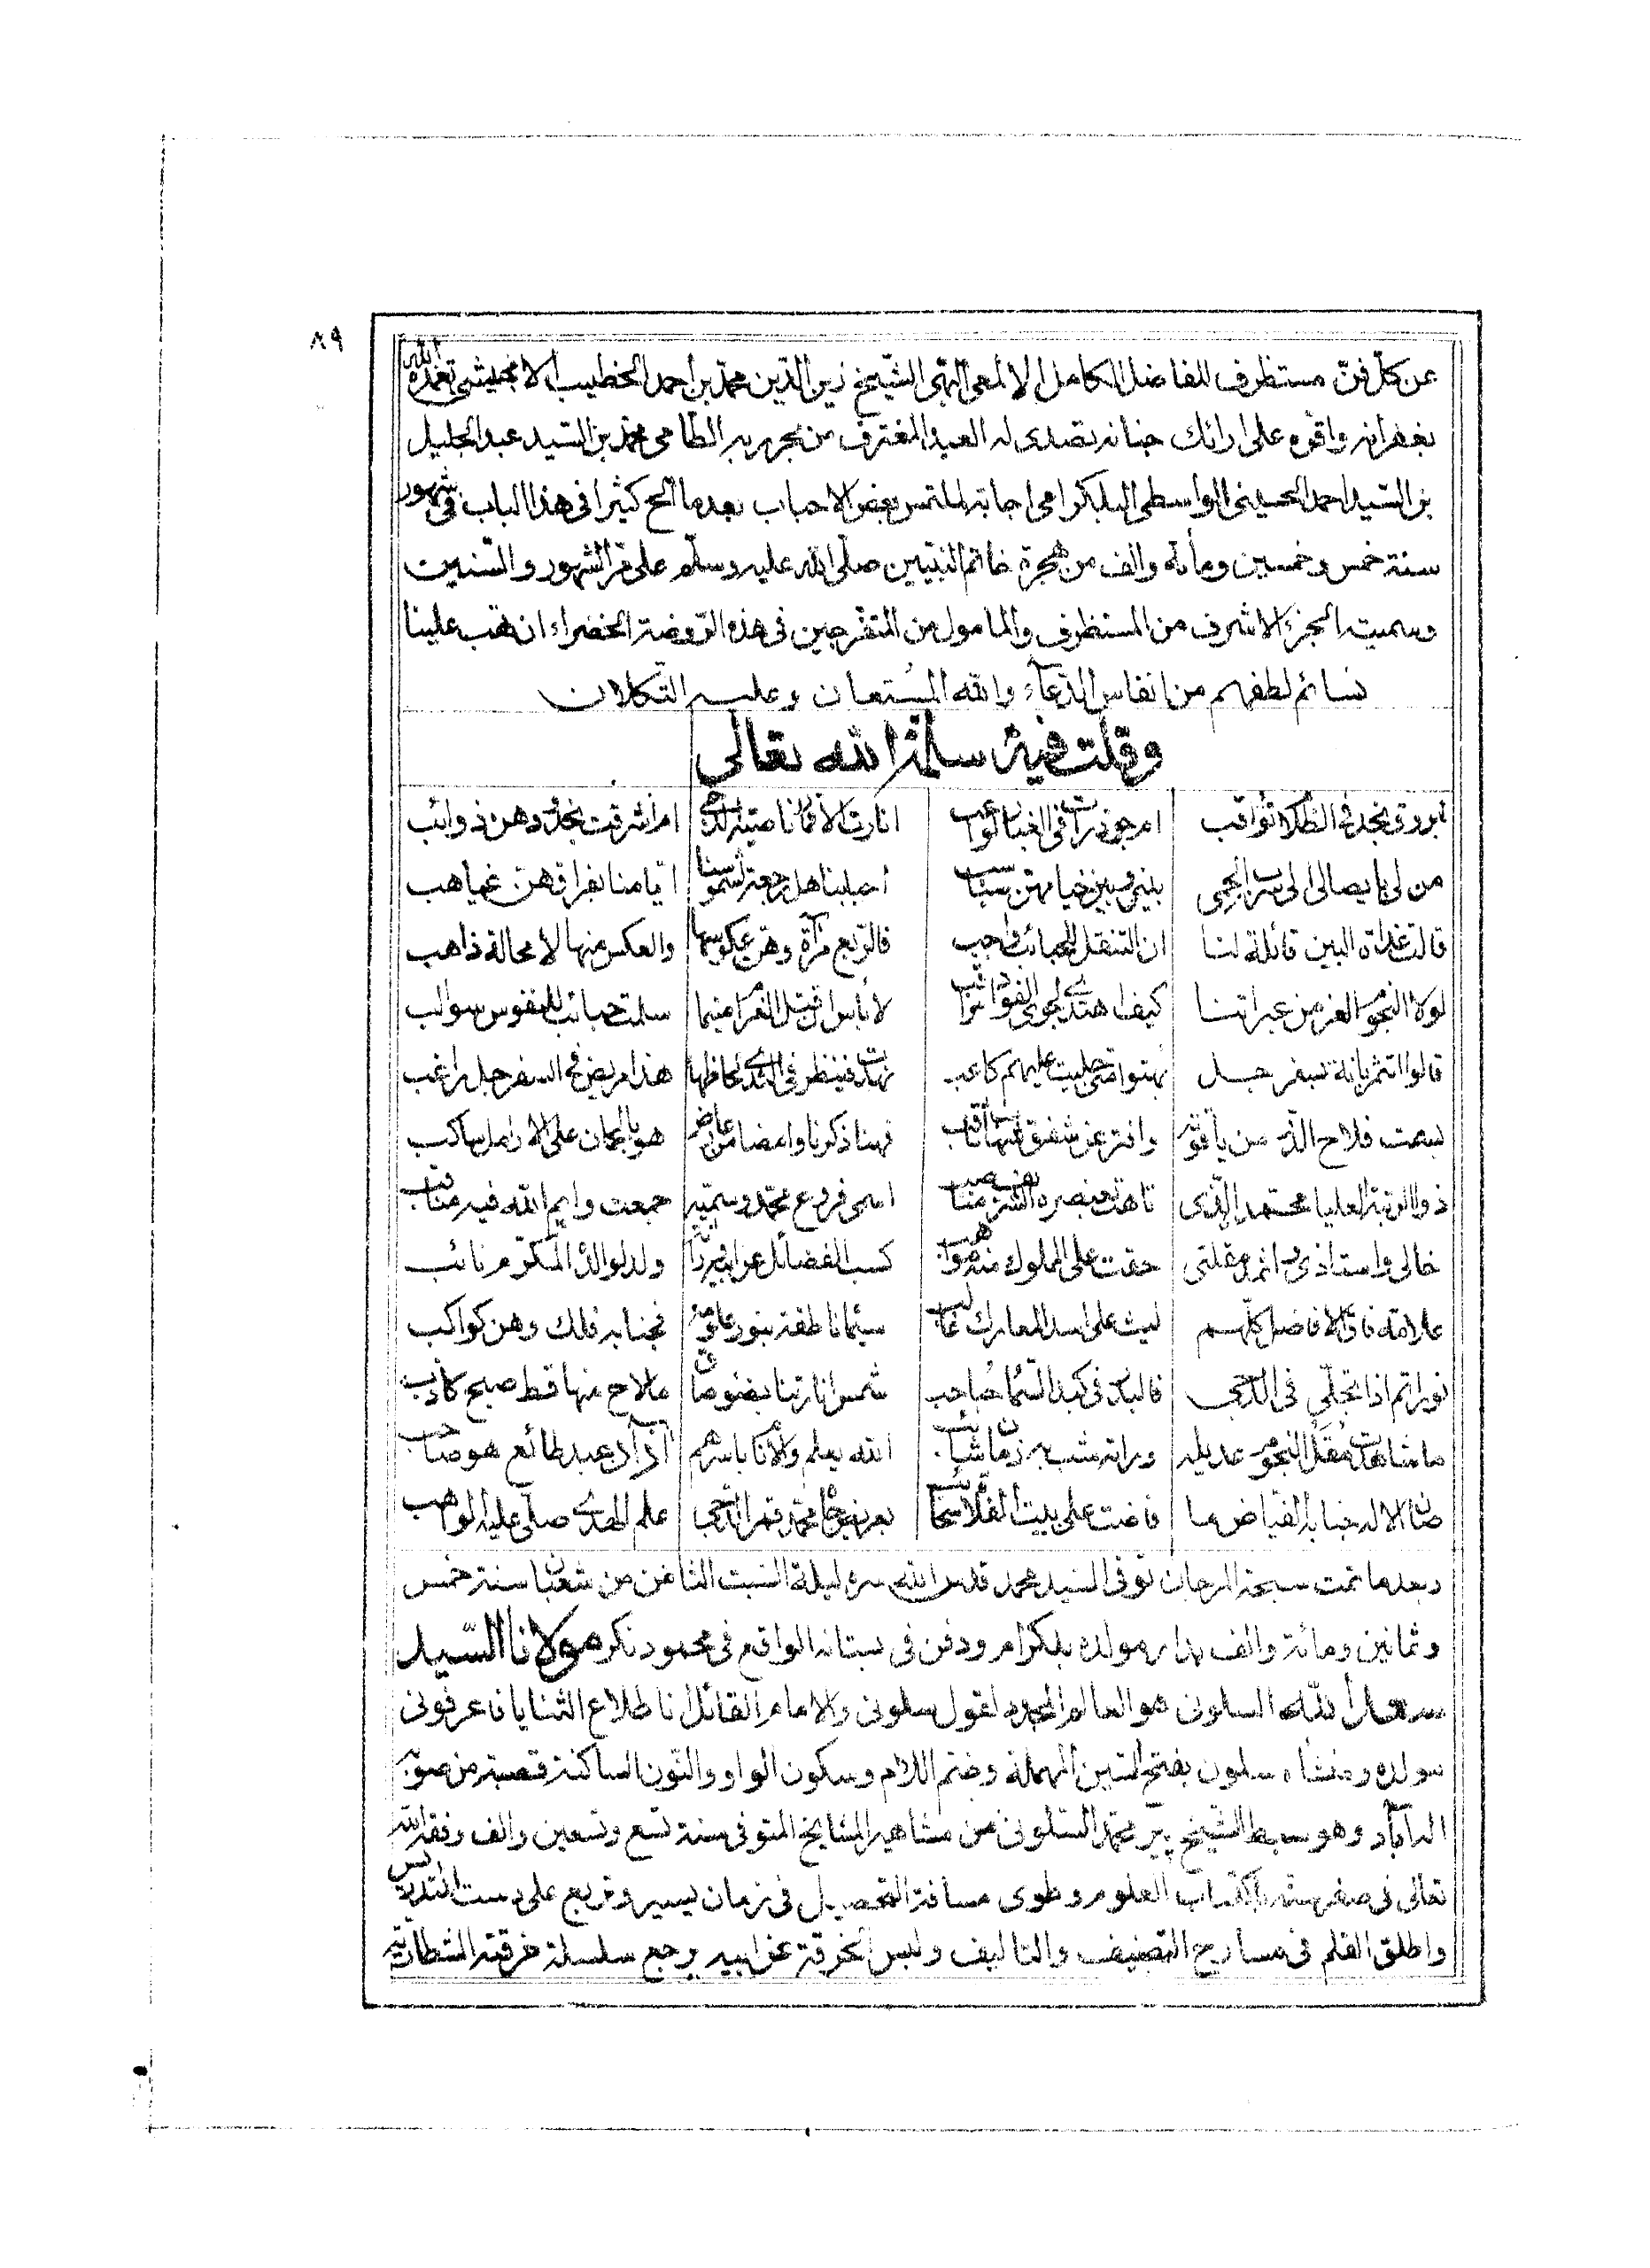 ٨٩
من كل فنّ مستظرف للفاضل الكامل الالمعي الشيخ زين الدّين محمّد بن احمد الخطيب الابشيهي تغمده الله
بغفرانه واقره على ارائك جنانه تصدى له العبد المغترف من بحر بره الطامي محمّد بن السّيد عبد الجليل
بن السّيد احمد الحسيني الواسطي البلكرامي اجابة لملتمس بعض الاحباب بعدما الح كثيرا في هذا الباب في شهور
سنة خمس وخمسين ومأئة والف من هجرة خاتم النبيّين صلّى الله عليه وسلّم على مرّ الشهور والسّنين
وسميته الجزء الاشرف من المستظرف والمامول من المتفرجين في هذه الرّوضة الخضراء ان تهب علينا
نسائم لطفهم من انفاس الدّعاء والله المستعان وعليه التّكلان
وقلت فيه سلمه الله تعالى
ابروق نجد في الظلام ثواقب ام جوذرات في الغياب لواعب
من لي بايصالي الى سرب الحمى بيني وبين خيامهن سباسب احبابنا هل رجعة لشموسنا ايامنا بفراقهن غياهب
قالت غداة البين قائلة لنا ان التنقل للحبائب واجب فالربع مرآة وهن عكوسها والعكس منها لا محالة ذاهب
لولا النجوم الغر من عبراتنا كيف اهتدى لجوى الفؤاد لا باس ان قتل الغرام متيما سلبت حبائب للنفوس سوالب
قالوا بسفرجل كاعب فينظر في الثدي لحاظها هذا مريض في السفرجل راغب
بسمت فلاح الدّر من ياقوته وافتر عن شفق هو بالجمان على الاراهل ساكب
ذو الرتبة العليا محمّد الّذي تاهت بعنصره الشريف مناصب اسمى فروع محمّد وسميّه جمعت وايم الله فيه مناقب
خالي واستاذي واثمد مقلتي حقت على المملوك منه مواهب كسب الفضائل عن ابيه ولد لوالده المكرّم نائب
علامة فاق الافاضل كلّهم ليث على اسد المعارك غالب سيما ناطقة بنور علومه فجنابه فلك وهن كواكب
نور اتم اذا تجلّى في الدّجى فالبدر في كبد السّماء حباحب ما لاح منها قط صبح كاذب
ما شاهدت مقل النجوم عديله الله يعلم والانام باسرهم آزاد عبد طائع هو صاحب
صان الاله جنابه الفيّاض ما فاضت على بيت الفلاة سحائب محمّد قمر الدّجى علم الهدى صلّى عليه الواهب
وبعدما تمت سبحة المرجان توفى السّيد محمد قدس الله سره ليلة السّبت الثامن من شعبان سنة خمس
وثمانين ومائة والف بدار مولده بلكرام ودفن في بستانه الواقع في محمود نكر مولانا السّيد
سعد الله السلوني هو العالم لقول سلوني والامام القائل انا طلاع الثنايا فاعرفوني
مولده ومنشاه سلون بفتح السّين المهملة وضم اللام وسكون الواو والنّون الساكنة قصبة من صوبة
اله آباد وهو سبط الشّيخ پير محمّد السّلوني من مشاهير المشايخ المتوفى سنة تسع وتسعين والف وفقه الله
تعالى في صغر سنه باكتساب العلوم وطوى مسافة التحصيل في زمان يسير وتربع على دست التدريس
واطلق القلم في مسارح التصنيف والتاليف ولبس الخرقة عن ابيه يرجع سلسلة خرقته الشطارية